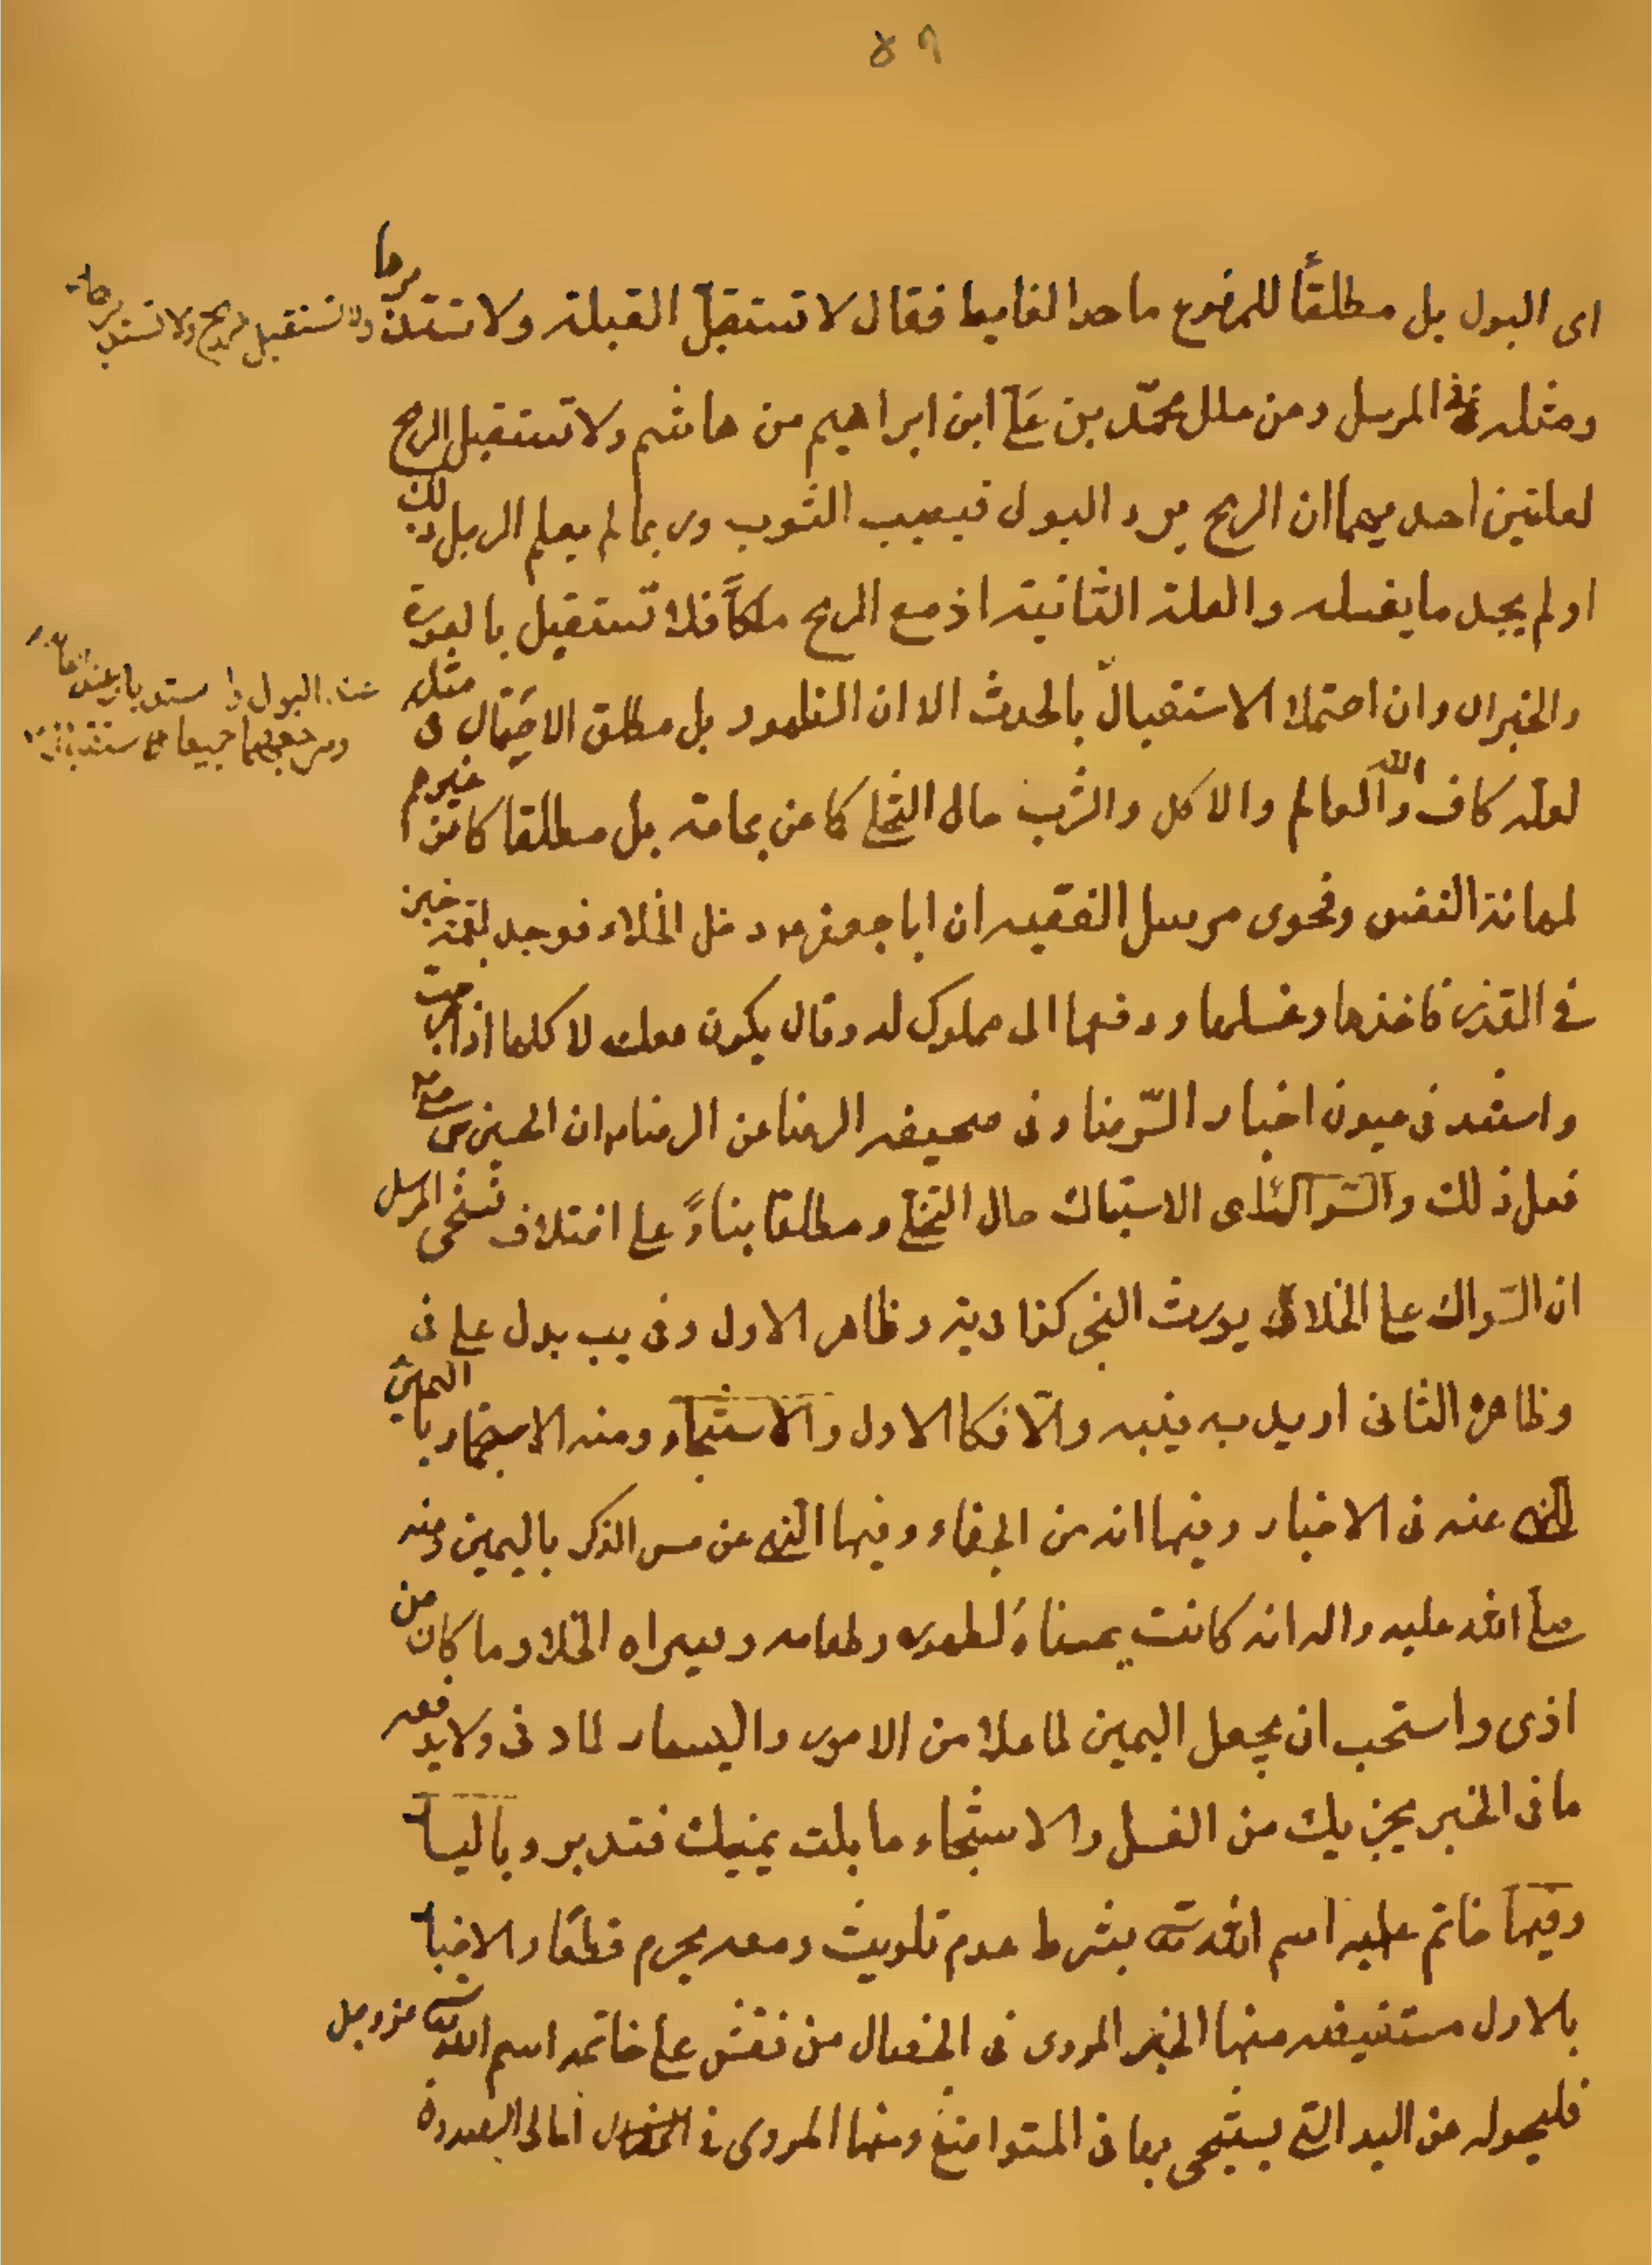 ٨٩
اى البول بل مطلقًا للمرفوع ماحد الغايط فقال لا تستقبل القبلة ولا تستدبرها
ولا تستقبل الريح ولا تستدبرها
ومثله المرسل ومن علل محمّد بن على ابن ابراهيم من هاشم ولا تستقبل الريح
لعلتين احديهما ان الريح يرد البول فيصيب الثوب وربما لم يعلم الرجل ذلك
اولم يجد ما يغسله والعلة الثانية اذ مع الريح ملكًا فلا تستقبل بالعورة
والخبران وان احتملا الاستقبال بالحدث الا ان الظهور بل مطلق الاحتمال فى مثله
عند البول
لعله كاف والله العالم والاكل والشرب حال التخلى كما عن جامعة بل مطلقا كما عن غيرهم
لمهانة النفس وفحوى مرسل الفقيه ان ابا جعفر دخل الخلاء فوجد لقمة خبز
فى القذر فاخذها وغسلها ودفعها الى مملوك له وقال يكون معك لاكلها اذا خرجت
واسند فى عيون اخبار الرضا وفى صحيفه الرضا عن الرضا ان الحسين
فعل ذلك والسواك اى الاستياك حال التخلى ومطلقا بناءً على اختلاف نسختى المرسل
ان السواك على الخلاء يورث البخر كذا فى يه وظاهر الاول وفى يب بدل على فى
وظاهره الثانى اريد به ينبه والّا فكالاول والاستنجاء ومنه الاستجمار باليمين
للنهى عنه فى الاخبار وفيها انه من الجفاء وفيها النهى عن مس الذكر باليمين وعنه
صلى الله عليه واله انه كانت يمناه لطهوره وطعامه ويسراه للخلا وما كان من
اذى واستحب ان يجعل اليمين لما علا من الامور واليسار لما دنى ولا يدفعه
ما فى الخبر يجزيك من الغسل والاستنجاء ما بلت يمينك فتدبر وباليسا
وفيها خاتم عليه اسم الله بشرط عدم تلويث ومعه يحرم قطعًا والاخبا
بالاول مستفيضه منها الخبر المروى فى الخصال من نقش على خاتمه اسم الله عزوجل
فليحوله عن اليد التى يستنجى بها فى المتوضأ ومنها المروى فى امالى الصدوق